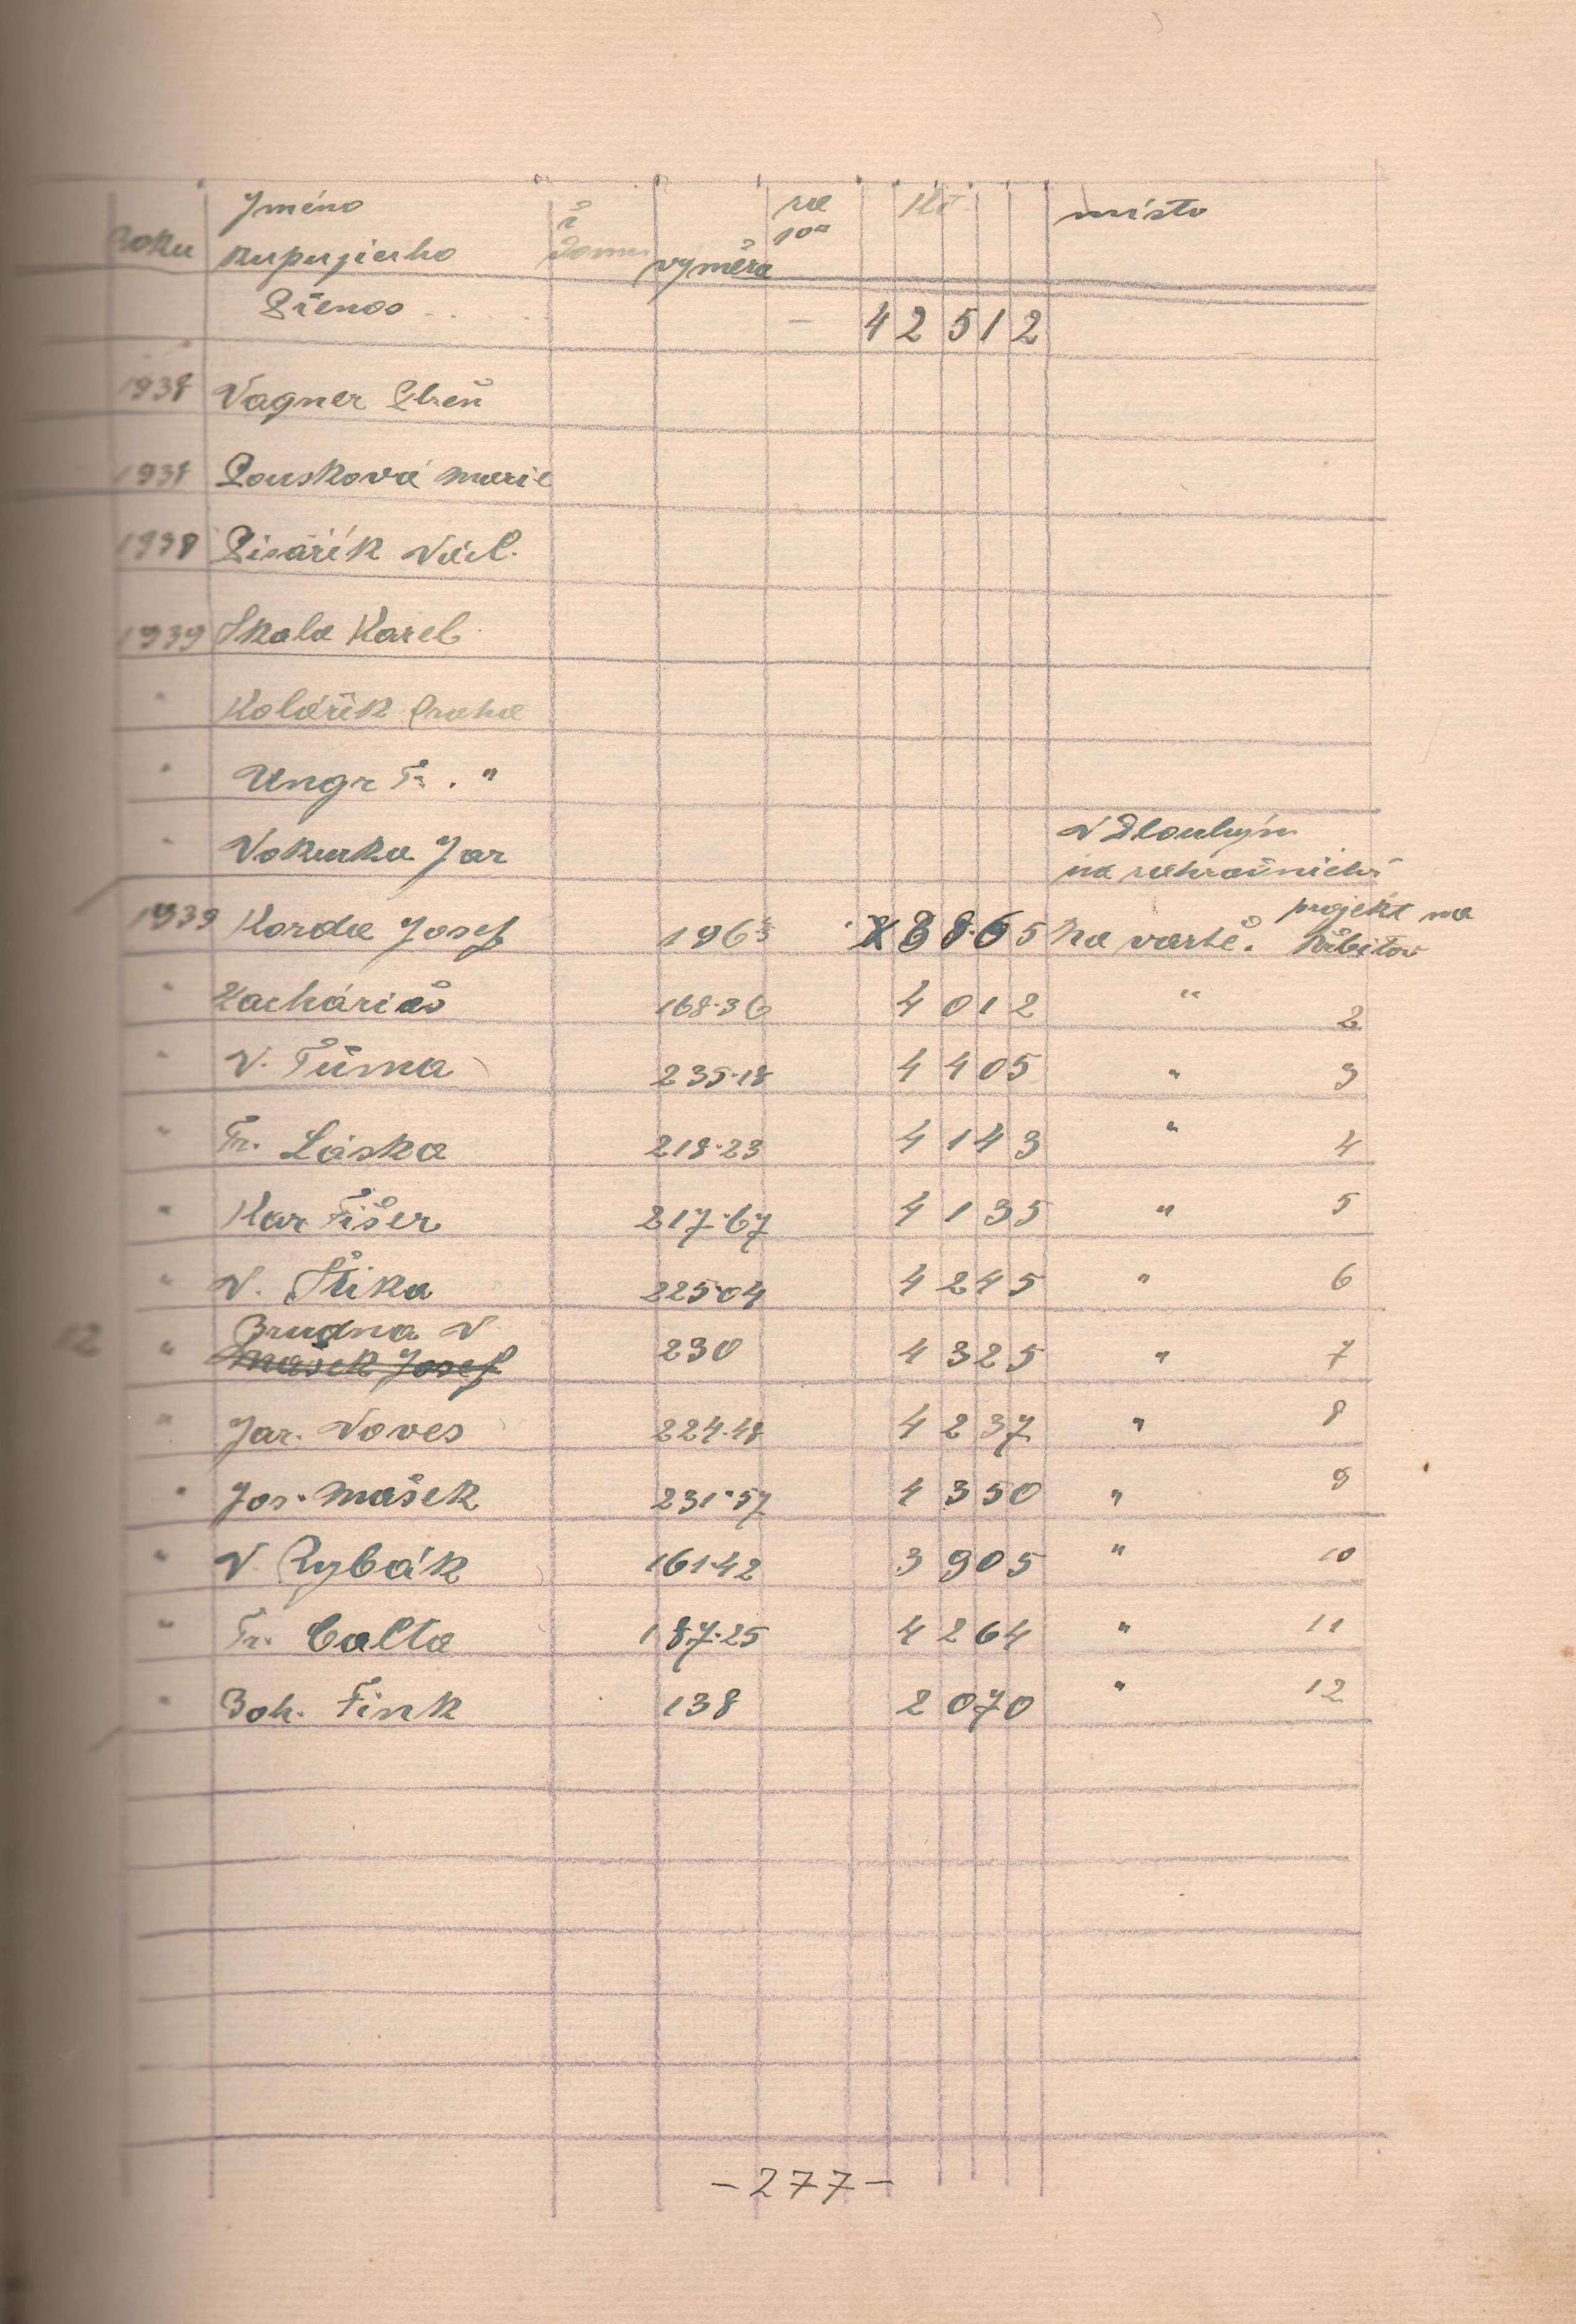 Jméno č za Kč místo
Roku kupujícího domu výměra 100
Přenos - 42512
1938 Vagner Plzeň
1938 Pousková Marie
1938 Pisařík Václ.
1939 Skala Karel
" Kolářík Praha
" Ungr Fr. "
" Vokurka Jar V Dlouhým
na zahradnictví
1939 Korda Josef 196 3865 Na vartě. projekt na hřbitov
" Zachariáš 168·36 4012 " 2
" V. Tůma 235·18 4405 " 3
" Fr. Láska 218·23 4143 " 4
" Kar Fišer 217·67 4135 " 5
" V. Štika 225·04 4245 " 6
Brudna V.
12 " Mašek Josef 230 4325 " 7
" Jar. Voves 224·48 4237 " 8
" Jos. Mašek 231·57 4350 " 9
" V. Rybák 161·42 3905 " 10
" Fr. Calta 187·25 4264 " 11
" Boh. Fink 138 2070 " 12
-277-